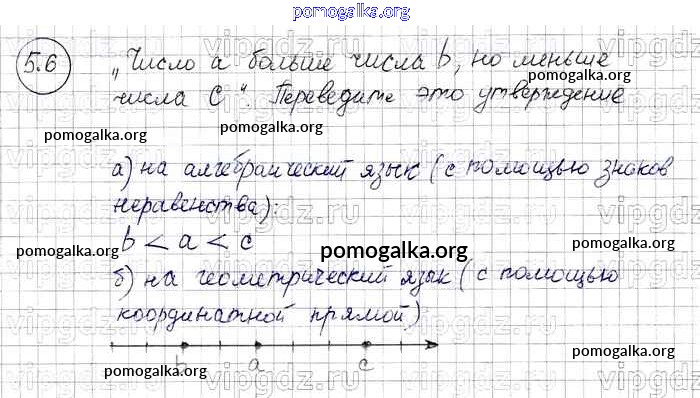 pomogalka.org
5.6 „Число a больше числа b, но меньше
pomogalka.org
числа c“. Переведите это утверждение
pomogalka.org
pomogalka.org
а) на алгебраический язык (с помощью знаков
неравенства):
pomogalka.org
b < a < c
pomogalka.org pomogalka.org
б) на геометрический язык (с помощью
координатной прямой)
pomogalka.org
b a c
pomogalka.org
pomogalka.org
vipgdz.ru